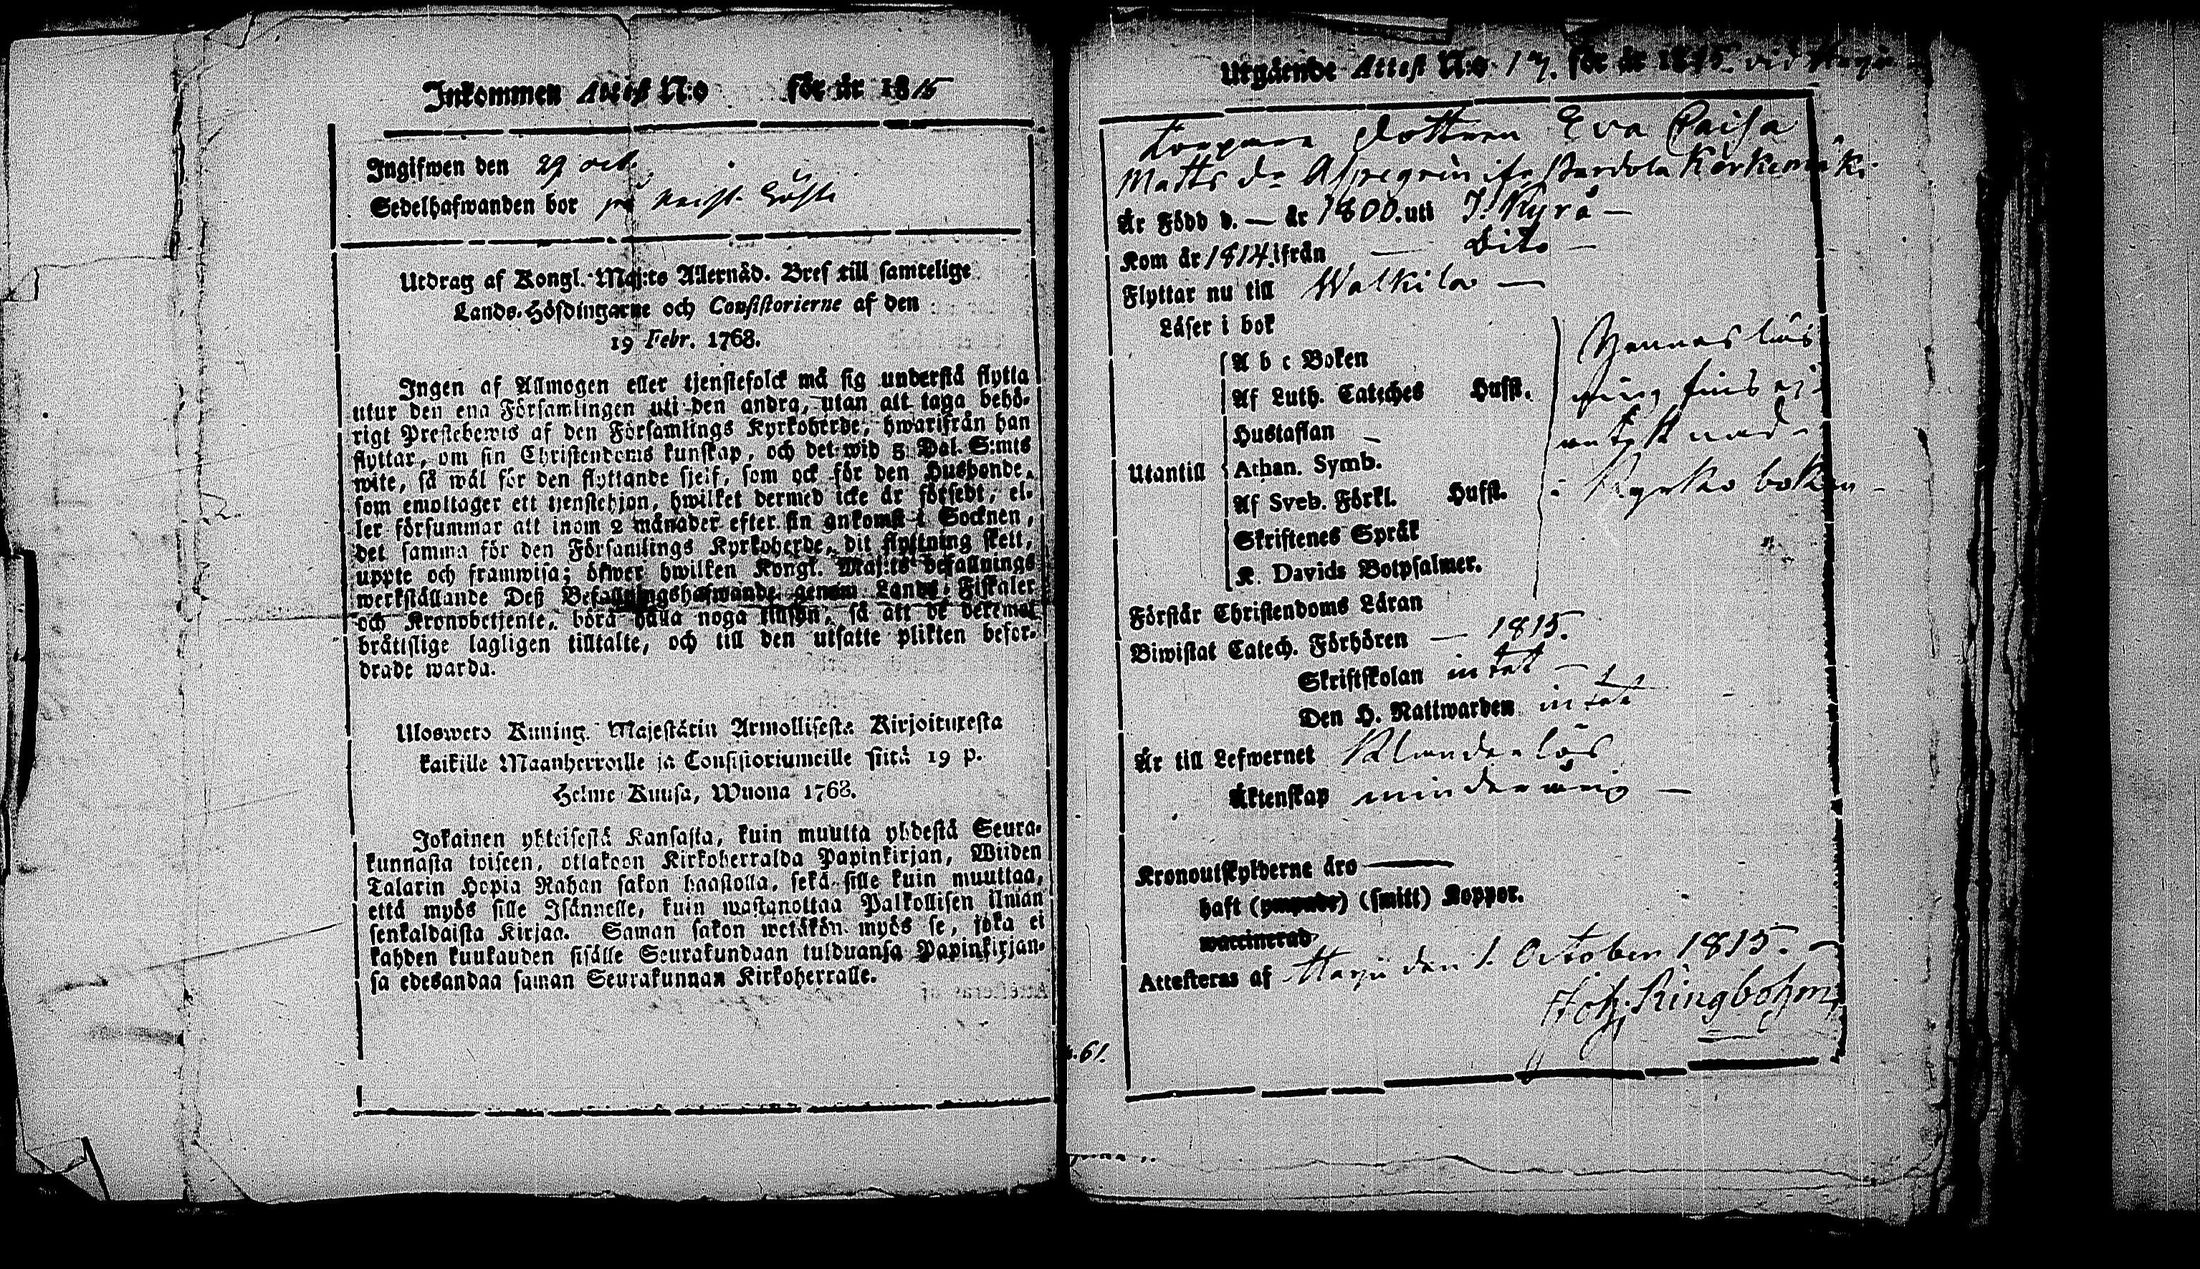 Inkommen Attest N:o för år 1815
Ingifwen den 29 oct.
Sedelhafwanden bor på
Utdrag af Kongl. Maj:ts Allernåd. Bref till samtelige
Lands-Höfdingarne och Consistorierne af den
19 Febr. 1768.
Ingen af Allmogen eller tjenstefolck må sig understå flytta
utur den ena Församlingen uti den andra, utan att taga behö-
rigt Prestebewis af den Församlings Kyrkoherde, hwarifrån han
flyttar, om sin Christendoms kunskap, och det wid 5 Dal. S:mts
wite, så wäl för den flyttande sjelf, som ock för den Husbonde,
som emottager ett tjenstehjon, hwilket dermed icke är försedt, el-
ler försummar att inom 2 månader efter sin ankomst i Socknen,
det samma för den Församlings Kyrkoherde, dit flyttning skett,
uppte och framwisa; öfwer hwilken Kongl. Maj:ts befallnings
werkställande Deß Befallningshafwande genom Lands-Fiskaler
och Kronobetjente, böra hålla noga tillsyn, så att de deremot
bråttslige lagligen tilltalte, och till den utsatte plikten befor-
drade warda.
Uloswero Kuning. Majestätin Armollisesta Kirjoituxesta
kaikille Maanherroille ja Consistoriumeille siitä 19 p.
Helme Kuusa, Wuona 1768.
Jokainen yhteisestä Kansasta, kuin muutta yhdestä Seura-
kunnasta toiseen, ottakoon Kirkoherralda Papinkirjan, Wiiden
Talarin Hopia Rahan sakon haastolla, sekä sille kuin muuttaa,
että myös sille Isännelle, kuin wastanottaa Palkollisen ilman
senkaldaista Kirjaa. Saman sakon wetäkön myös se, joka ei
kahden kuukauden sisälle Seurakundaan tulduansa Papinkirjan-
sa edesandaa saman Seurakunnan Kirkoherralle.
Utgående Attest N:o 17. för år 1815. vid
dottren Eva Caisa
Matts dr
Är Född d. — år 1800. uti I: Kyrö —
Kom år 1814. ifrån — Dito —
Flyttar nu till Walkila —
Läser i bok
A b c Boken
Af Luth. Cateches Hufst.
Hustaflan
Utantill
Athan. Symb.
Af Sveb. Förkl. Hufst.
Skriftenes Språk
K. Davids Botpsalmer.
Hennes läs
ning fins ej
antecknad
i Kyrko boken
Förstår Christendoms Läran
Biwistat Catech. Förhören — 1815.
Skriftskolan intet —
Den H. Nattwarden intet
Är till Lefwernet Klanderlös
Äktenskap minderårig —
Kronoutskylderne äro —
haft (ympade) (smitt) Koppor.
waccinerad
Attesteras af Harju den 1. October 1815. —
Joh. Ringbohm
61.